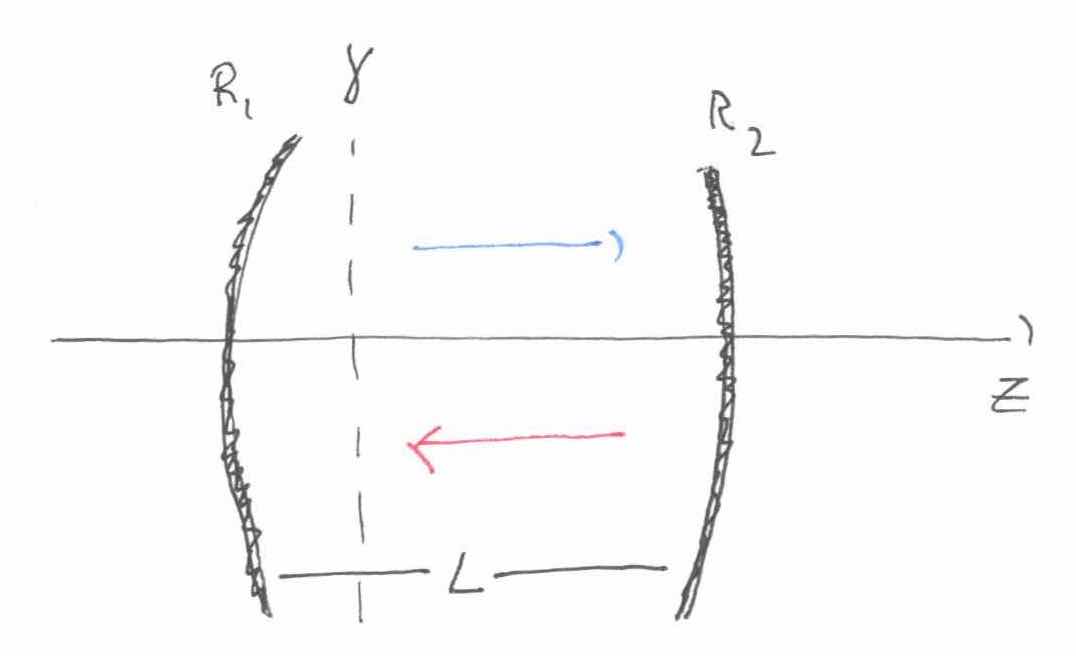 R₁
γ
R₂
Z
L